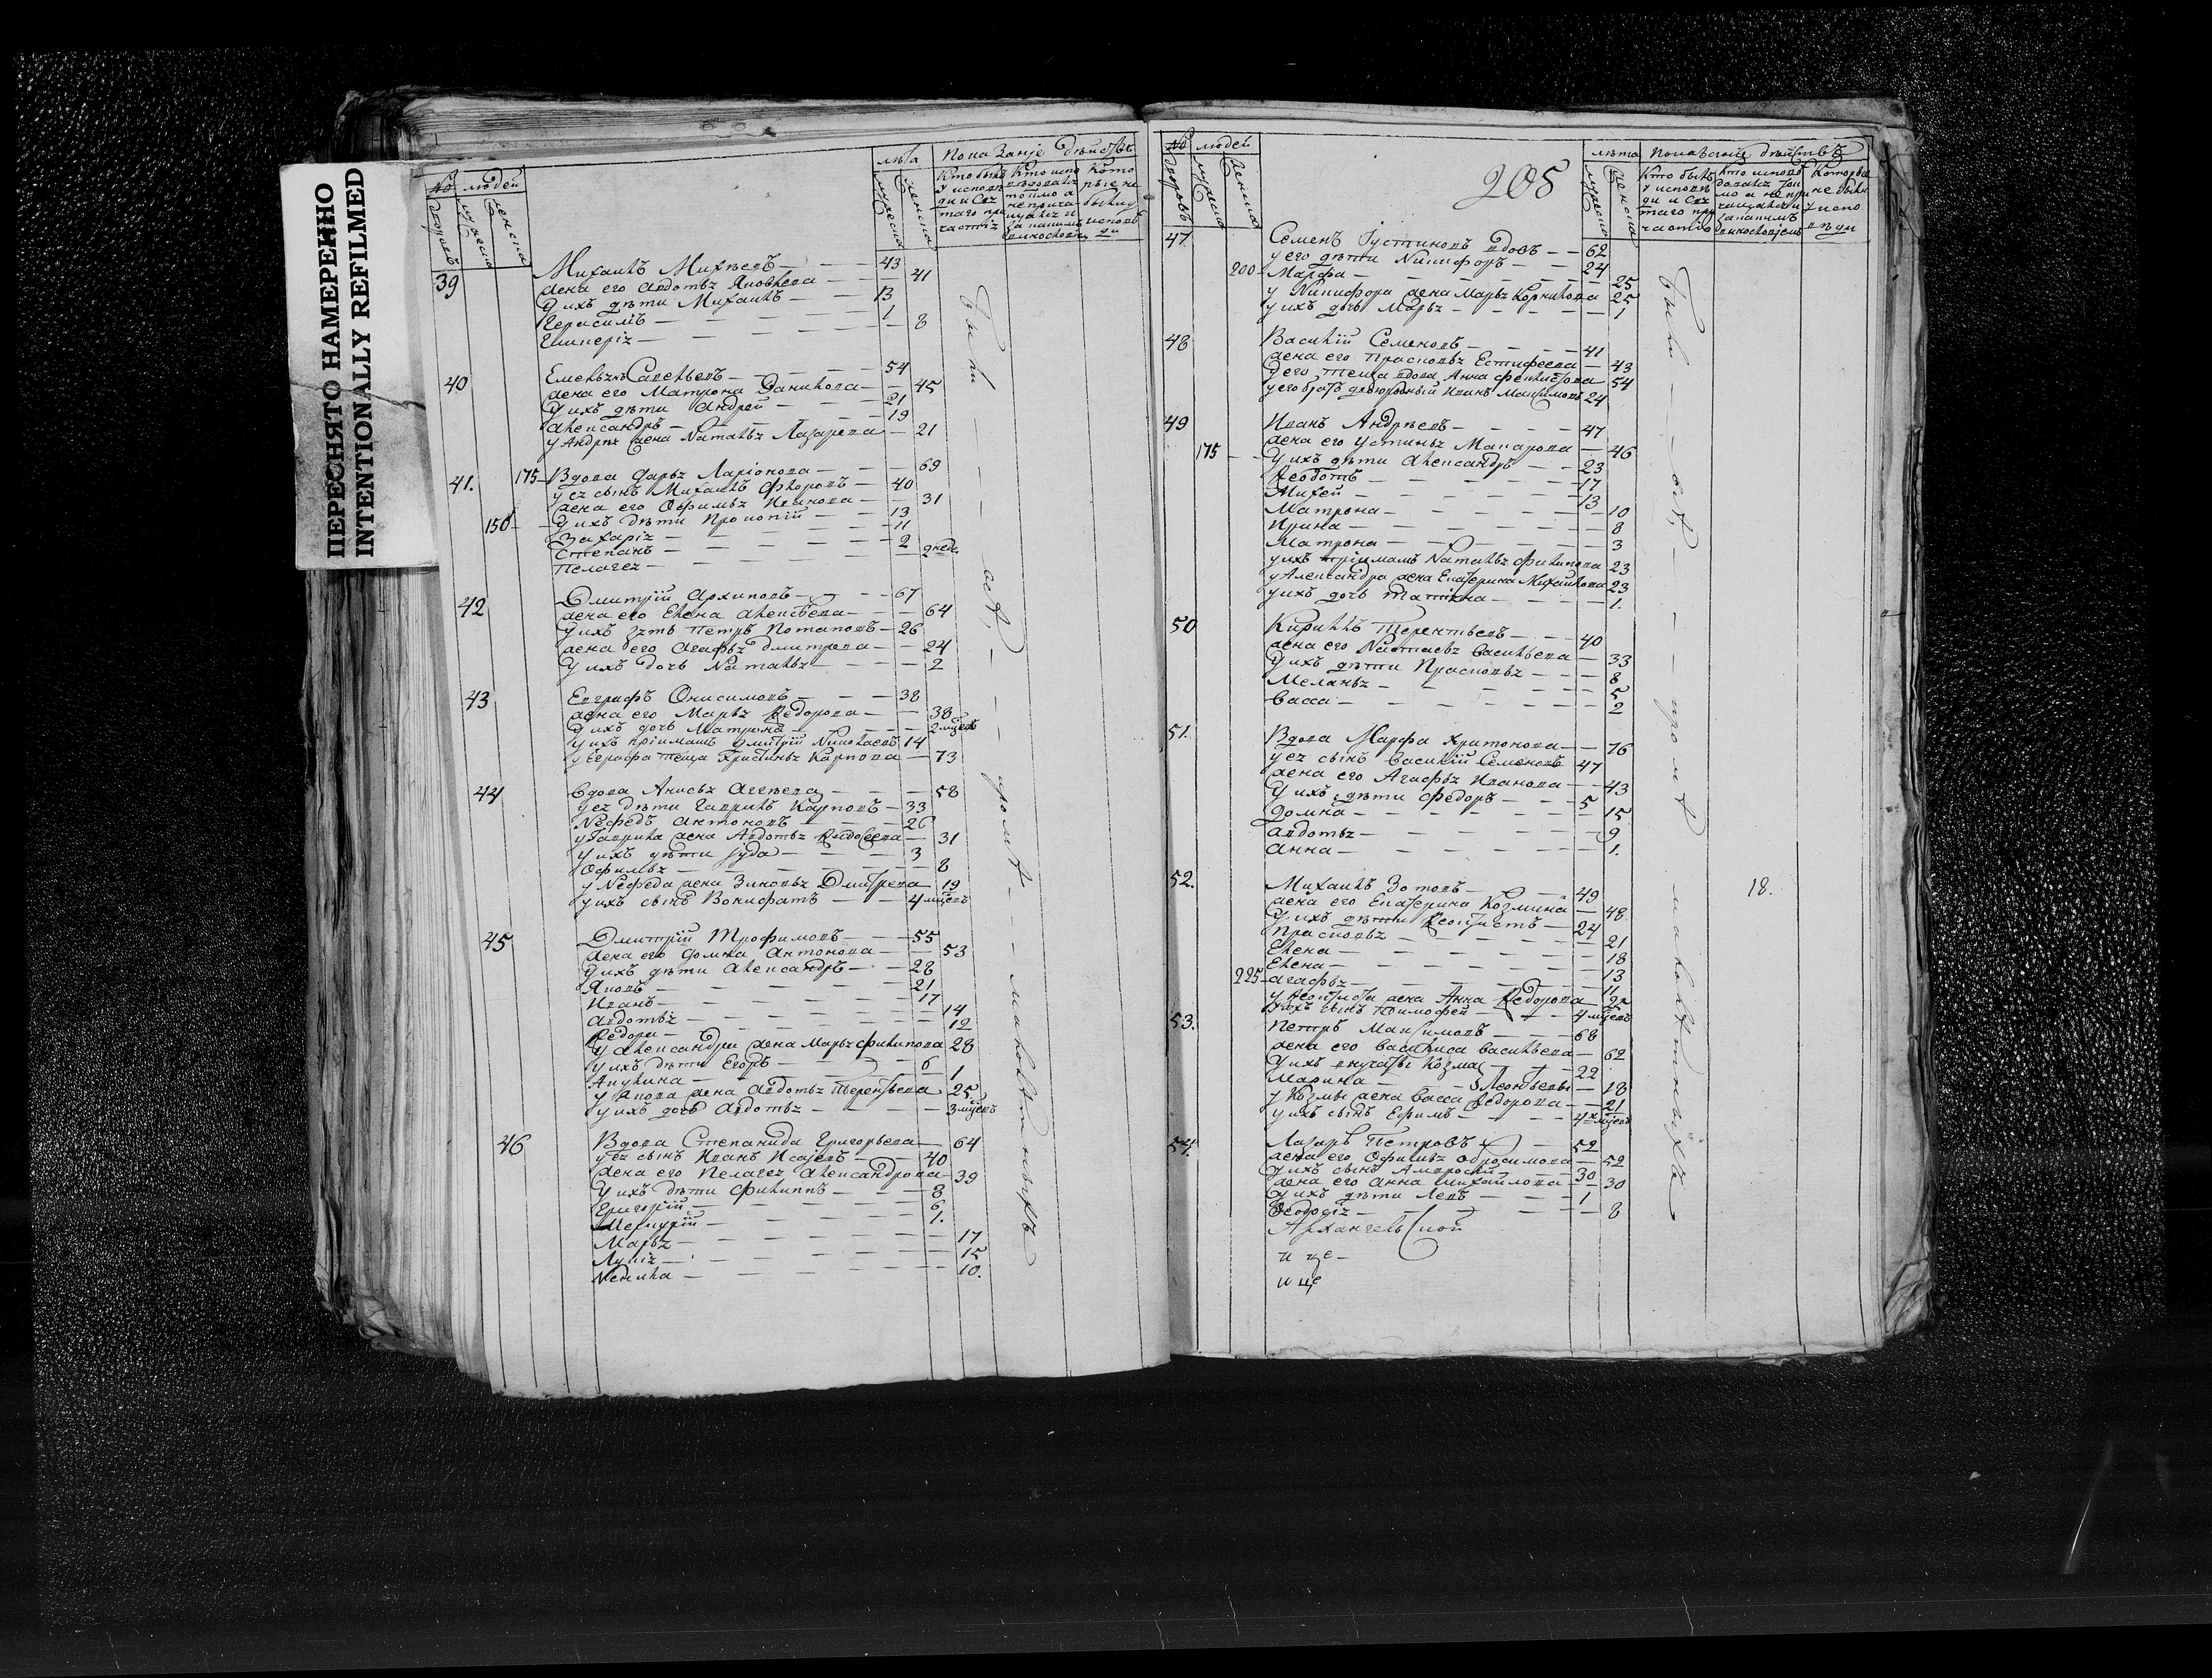 ПЕРЕСНЯТО НАМЕРЕННО
INTENTIONALLY REFILMED
№ людей лѣта Показаніе дѣйствъ
дворовъ мужеска женска мужеска женска
39 Михаилъ Михѣевъ — 43
жена его Авдотья Яковлева — 41
У ихъ дѣти Михаилъ — 13
Герасимъ — 1
Гликерія — 8
40 Емельянъ Савельевъ — 54
жена его Матрона Данилова — 45
У ихъ дѣти Андрей — 21
Александръ — 19
у Андрея жена Наталья Лазарева — 21
41. 175 Вдова Дарья Ларіонова — 69
у ея сынъ Михаилъ Флоровъ — 40
жена его Офимья Иванова — 31
150 У ихъ дѣти Прокопій — 13
Захарія — 11
Степанъ — 2
Пелагея — 2 нед.
42 Дмитрій Архиповъ — 67
жена его Елена Алексѣева — 64
У ихъ зять Петръ Потаповъ — 26
жена его Агафья Дмитрева — 24
У ихъ дочь Наталья — 2
43 Евграфъ Онисимовъ — 38
жена его Марья Ѳедорова — 38
У ихъ дочь Матрона — 2 мѣсяцъ
У ихъ пріимашъ Дмитрій Николаевъ 14
у Евграфа теща Христинья Карпова — 73
44 Вдова Анисья Аггѣева — 58
у ея дѣти Гаврилъ Карповъ — 33
Нефедъ Антоновъ — 26
у Гаврила жена Авдотья Ѳедосеева — 31
У ихъ дѣти Іуда — 3
Офимья — 8
у Нефеда жена Зиновья Дмитрева 19
у ихъ сынъ Вонифатъ — 4 мѣсяцъ
45 Дмитрій Трофимовъ — 55
жена его Домна Антонова — 53
У ихъ дѣти Александръ — 28
Яковъ — 21
Иванъ — 17
Авдотья — 14
Ѳедора — 12
У Александра жена Марья Филипова 28
у ихъ дѣти Егоръ — 6
Акулина — 1
у Якова жена Авдотья Терентьева 25.
у ихъ дочь Авдотья — 3 мѣсяцъ
46 Вдова Степанида Григорьева — 64
у ея сынъ Иванъ Исаіевъ — 40
жена его Пелагея Александрова — 39
У ихъ дѣти Филиппъ — 8
Григорій — 6
Меркурій — 1.
Марья — 17
Лукія — 15
Ненила — 10.
Были — всѣ, — кромѣ — малолѣтныхъ
205
№ людей лѣта Показаніе дѣйствъ
дворовъ мужеска женска мужеска женска
47 Семенъ Іустиновъ вдовъ — 62
у его дѣти Никифоръ — 24
200 Марфа — 25
у Никифора жена Марья Корнилова 25
у ихъ дочь Марья — 1
48 Василій Семеновъ — 41
жена его Прасковья Естифеева — 43
У его теща вдова Анна Феклистова 54
у его братъ двоюродный Иванъ Максимовъ 24
49 Иванъ Андрѣевъ — 47
жена его Устинья Макарова — 46
175 У ихъ дѣти Александръ — 23
Ѳеодотъ — 17
Михей — 13
Матрона — 10
Ирина — 8
Матрона — 3
у ихъ пріимашъ Наталья Филипова 23
у Александра жена Екатерина Михайлова 23
у ихъ дочь Татіана — 1.
50 Кирилъ Терентьевъ — 40
жена его Настасья Васильева — 33
У ихъ дѣти Прасковья — 8
Меланья — 5
Васса — 2
51. Вдова Марфа Харитонова — 76
у ея сынъ Василій Семеновъ 47
жена его Агафья Иванова — 43
У ихъ дѣти Федоръ — 5
Домна — 15
Авдотья — 9
Анна — 1.
52. Михаилъ Зотовъ — 49
жена его Екатерина Козмина — 48
У ихъ дѣти Ѳеоктистъ — 24
Прасковья — 21
Елена — 18
Елена — 13
225 Агафья — 11
у Ѳеоктиста жена Анна Ѳедорова — 22
У ихъ сынъ Тимофей — 4 мѣсяцъ
53. Петръ Максимовъ — 68
жена его Василиса Васильева — 62
У ихъ внучаты Козма — 22
Марина — Леонтьевы — 18
у Козмы жена Васса Ѳедорова — 21
у ихъ сынъ Ефимъ — 4 мѣсяцъ
54. Лазарь Петровъ — 52
жена его Офимья Обросимова — 52
У ихъ сынъ Амвросій — 30
жена его Анна Михайлова — 30
У ихъ дѣти Левъ — 1
Ѳеодосія — 8
Архангельской
и це
и це
Были — всѣ, — кромѣ малолѣтныхъ
18.